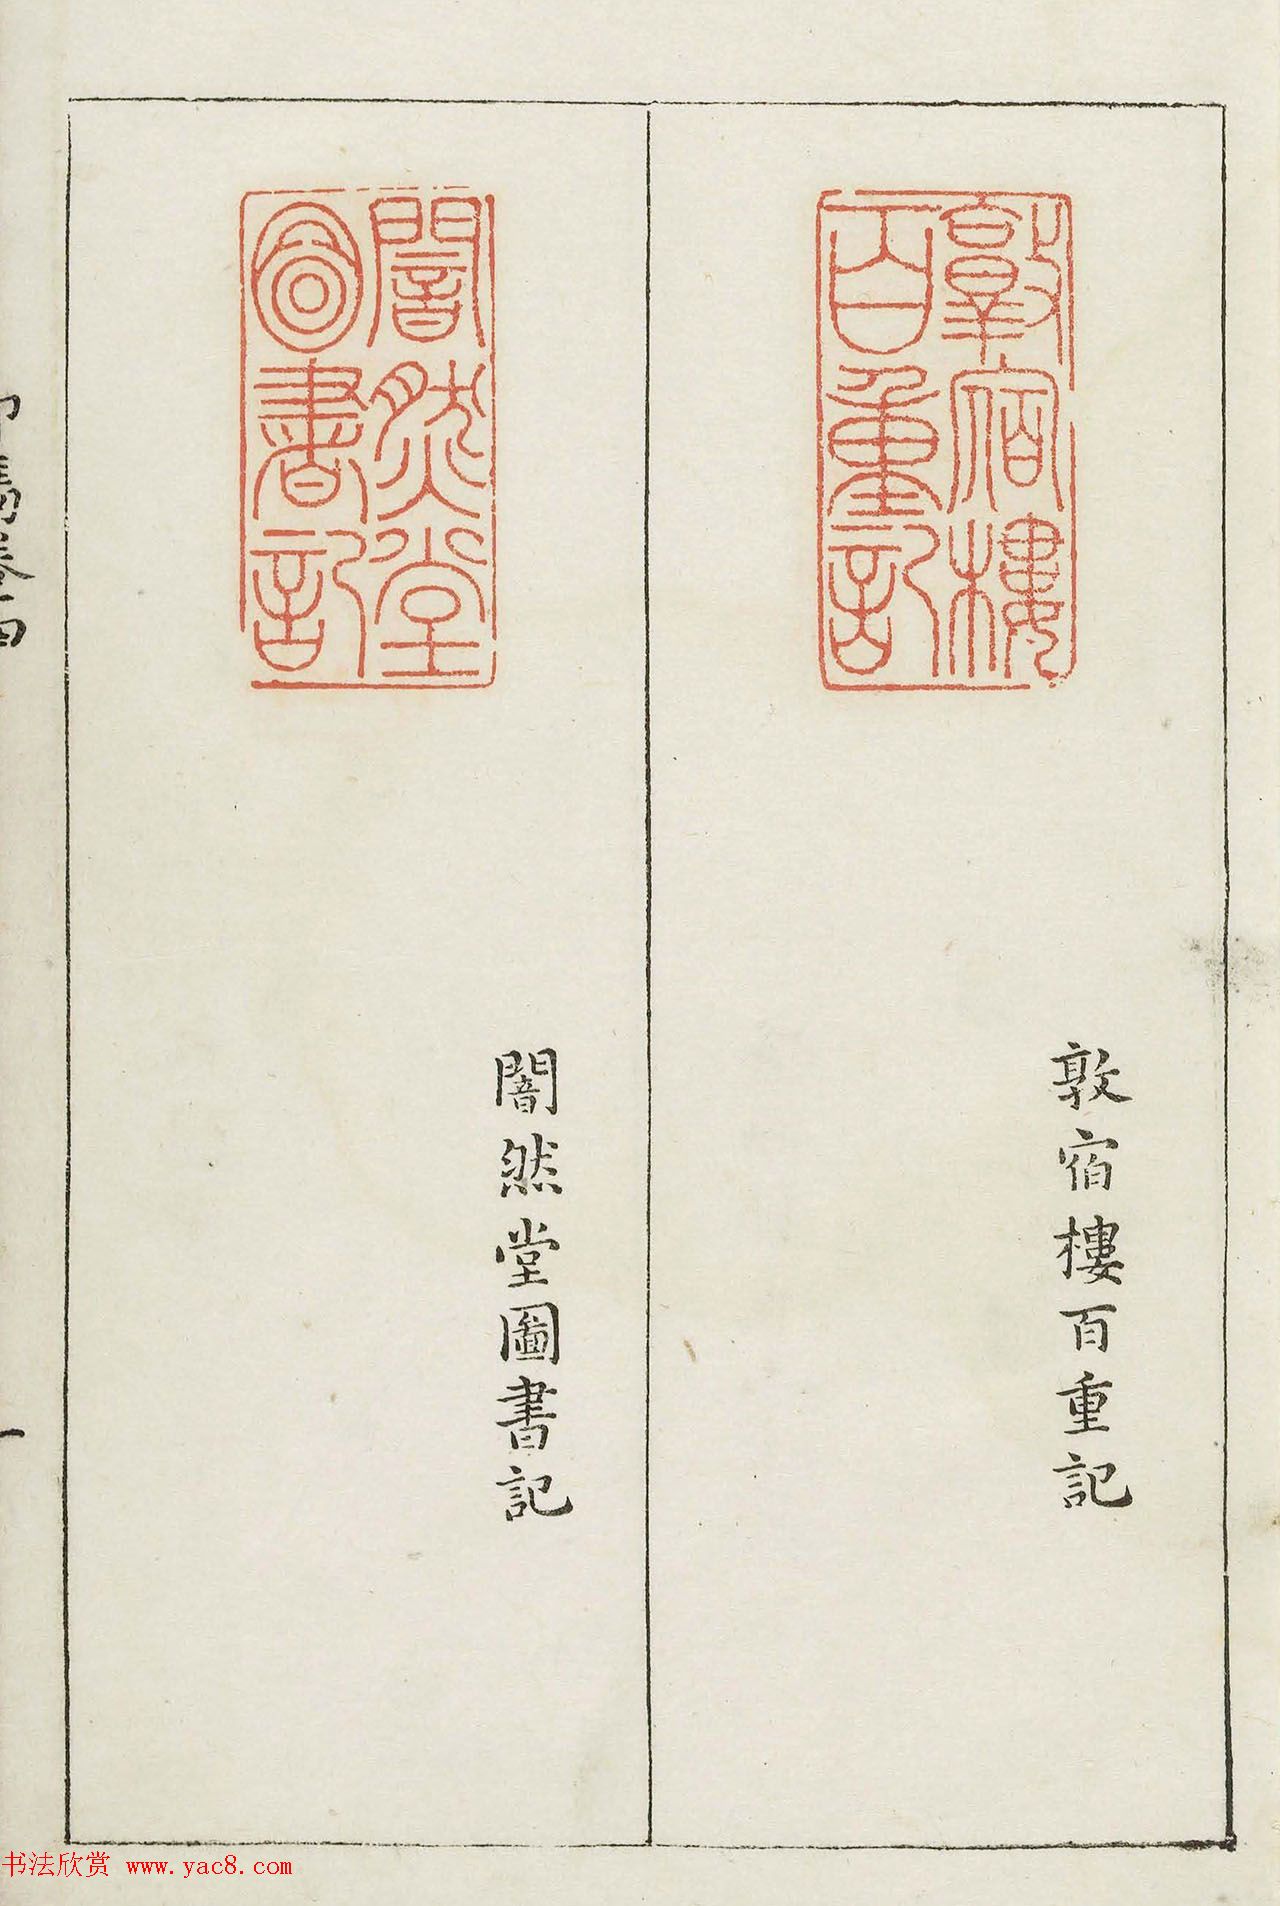 敦宿樓
百重記
敦宿樓百重記
闇然堂
圖書記
闇然堂圖書記
一
书法欣赏 www.yac8.com